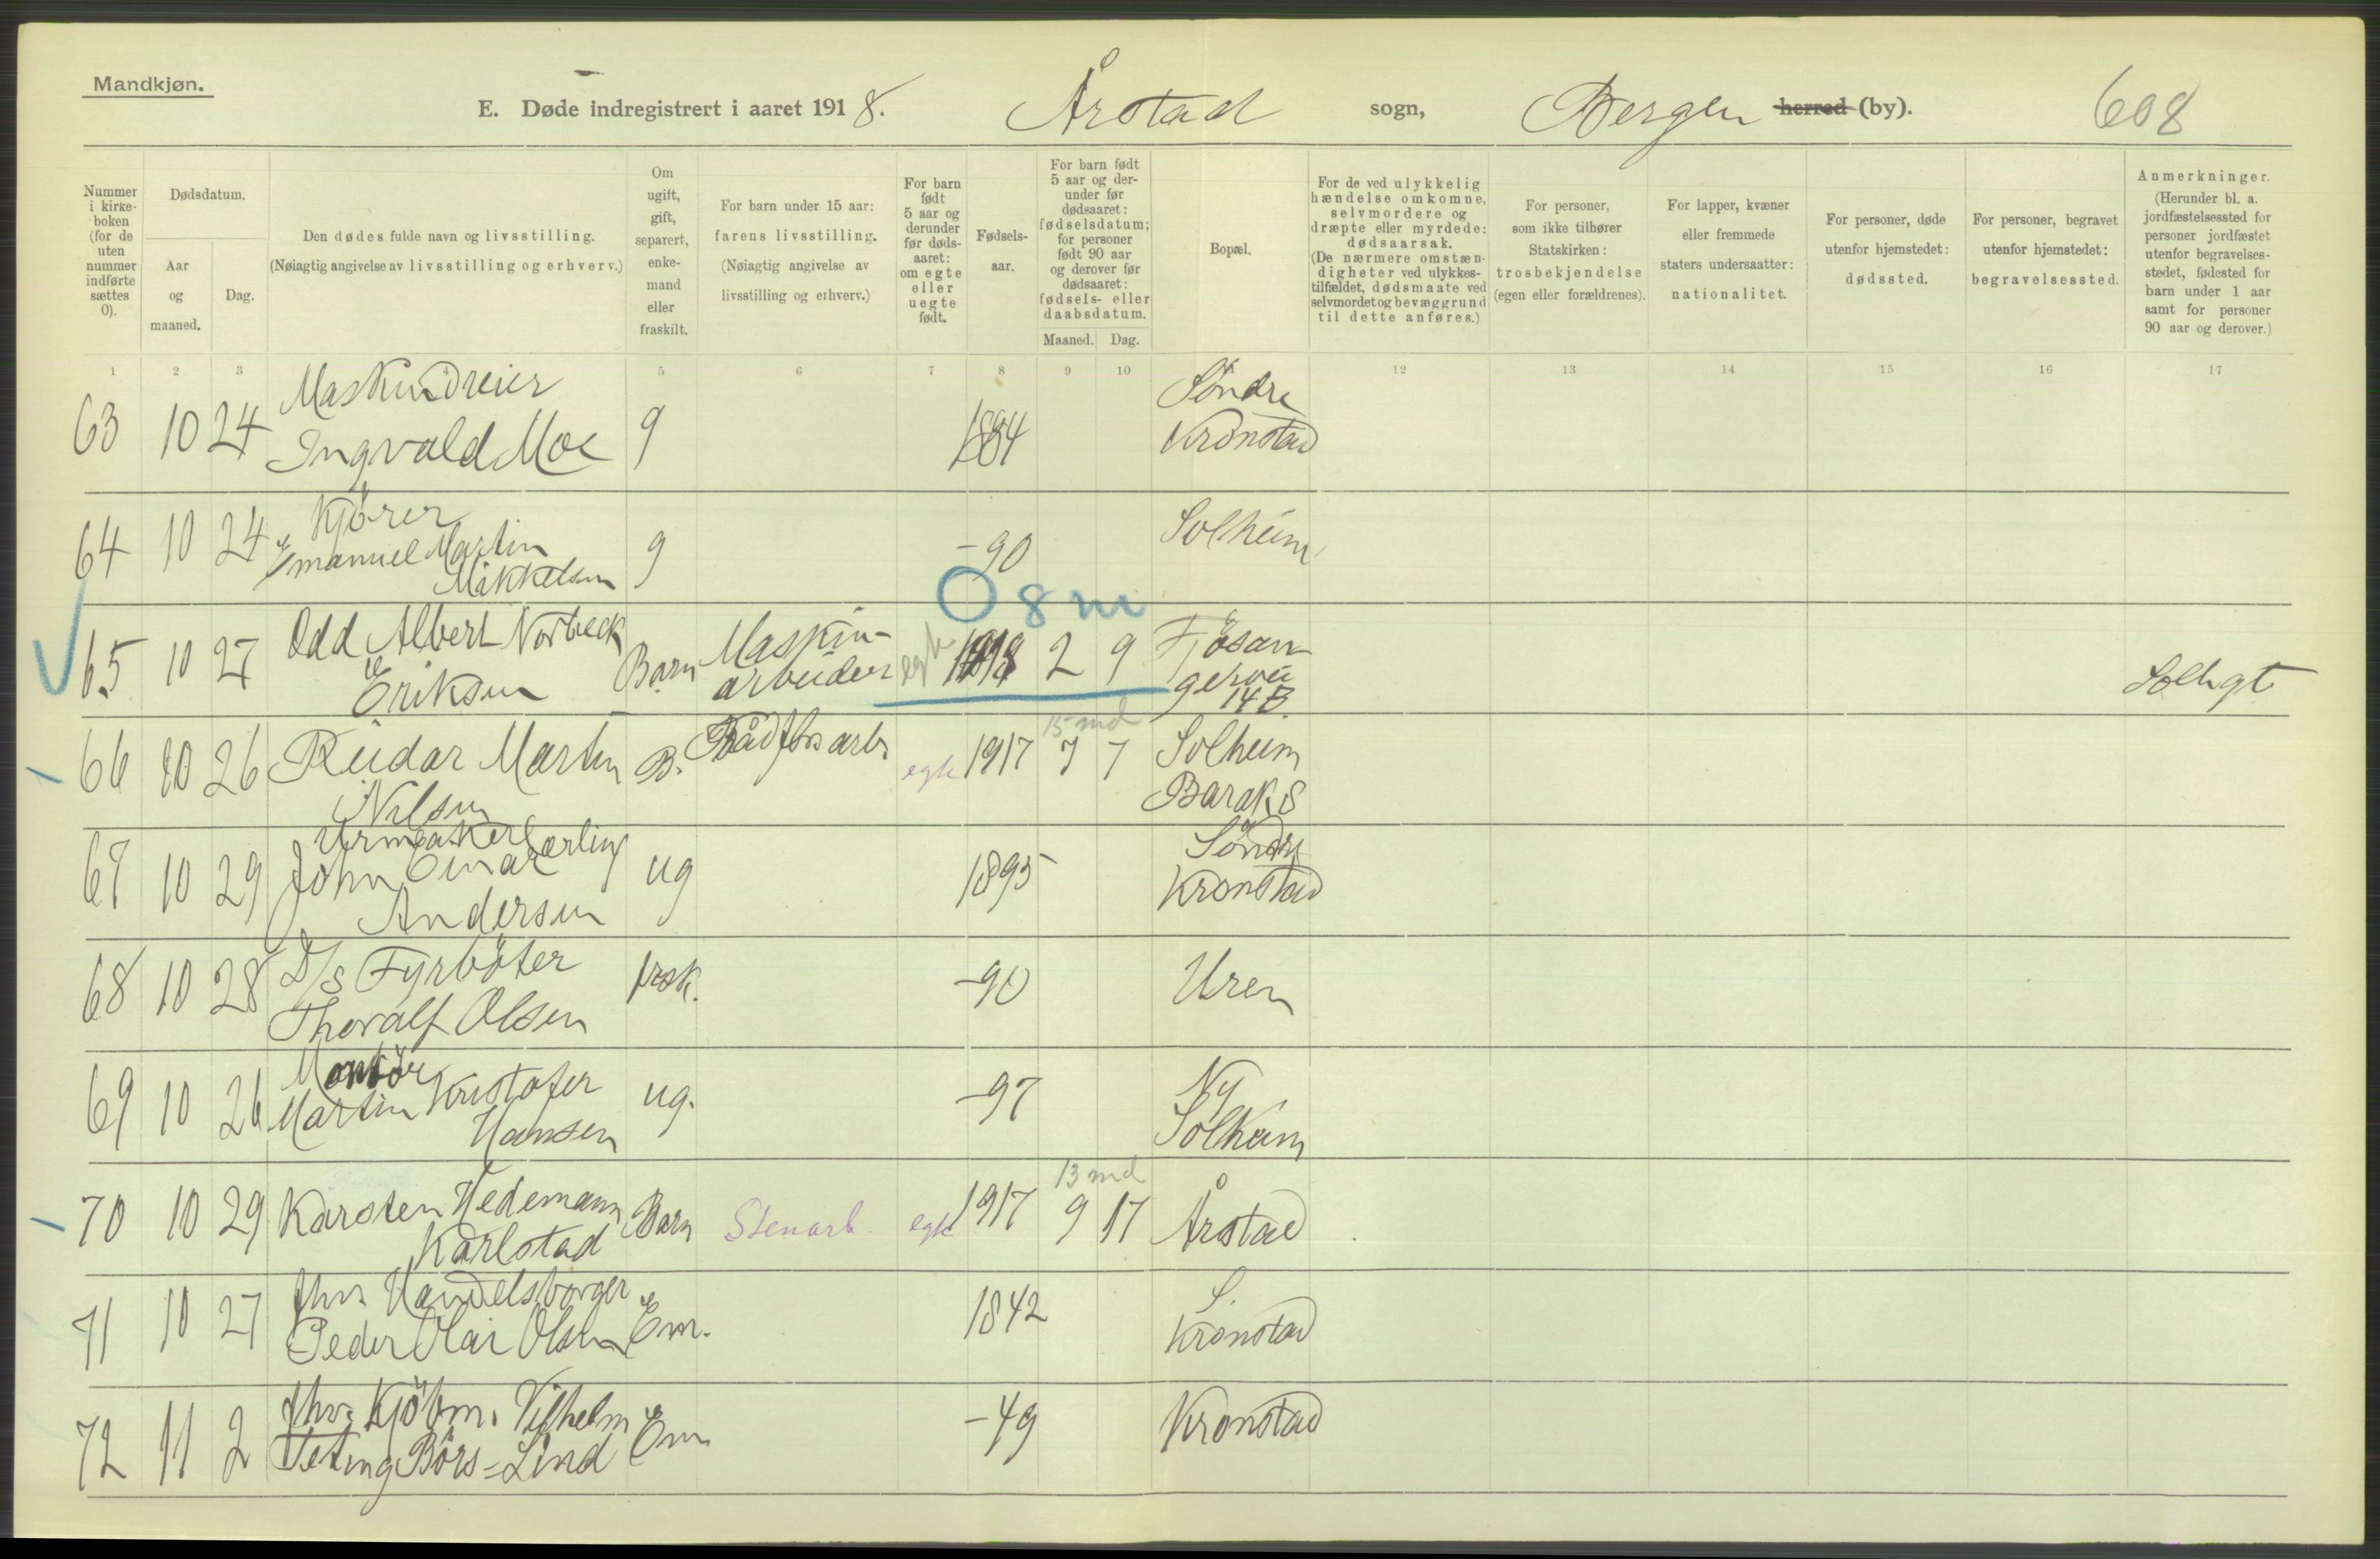 Mandkjøn.
E. Døde indregistrert i aaret 1918. Årstad sogn, Bergen herred (by). 608
Nummer i kirke-boken (for de uten nummer indførte sættes 0).
Dødsdatum.
Aar og maaned.
Dag.
Den dødes fulde navn og livsstilling.
(Nøiagtig angivelse av livsstilling og erhverv.)
Om ugift, gift, separert, enke-mand eller fraskilt.
For barn under 15 aar: farens livsstilling.
(Nøiagtig angivelse av livsstilling og erhverv.)
For barn født 5 aar og derunder før døds-aaret: om egte eller uegte født.
Fødsels-aar.
For barn født 5 aar og der-under før dødsaaret: fødselsdatum; for personer født 90 aar og derover før dødsaaret: fødsels- eller daabsdatum.
Maaned. Dag.
Bopæl.
For de ved ulykkelig hændelse omkomne, selvmordere og dræpte eller myrdede: dødsaarsak.
(De nærmere omstæn-digheter ved ulykkes-tilfældet, dødsmaate ved selvmordet og bevæggrund til dette anføres.)
For personer, som ikke tilhører Statskirken: trosbekjendelse (egen eller forældrenes).
For lapper, kvæner eller fremmede staters undersaatter: nationalitet.
For personer, døde utenfor hjemstedet: dødssted.
For personer, begravet utenfor hjemstedet: begravelsessted.
Anmerkninger.
(Herunder bl. a. jordfæstelsessted for personer jordfæstet utenfor begravelses-stedet, fødested for barn under 1 aar samt for personer 90 aar og derover.)
1 2 3 5 6 7 8 9 10 12 13 14 15 16 17
Maskindreier Søndre
63 10 24 Ingvald Moe g 1884 Kronstad
Kjörer
64 10 24 Emanuel Martin g -90 Solheim
Mikkelsen
0 8 m
65 10 27 Odd Albert Norbeck Barn Maskin- egte 1918 2 9 Fjösan-
Eriksen arbeider gervei
14 B. Solhgt
15 md
66 10 26 Reidar Martin B. egte 1917 7 7 Solheim
Nilsen Barak 8
Urmaker
67 10 29 John Einar Erling ug 1895 Söndre
Andersen Kronstad
68 10 28 D/s Fyrböter frsk. -90 Uren
Thoralf Olsen
Montör
69 10 26 Martin Kristofer ug. -97 Ny
Hansen Solheim
13 md
70 10 29 Karsten Hedemann Barn Stenarb. egte 1917 9 17 Årstad
Karlstad
fhv. Handelsborger S.
71 10 27 Peder Olai Olsen Em. 1842 Kronstad
72 11 2 fhv. Kjöbm. Vilhelm Em -49 Kronstad
Börs=Lind